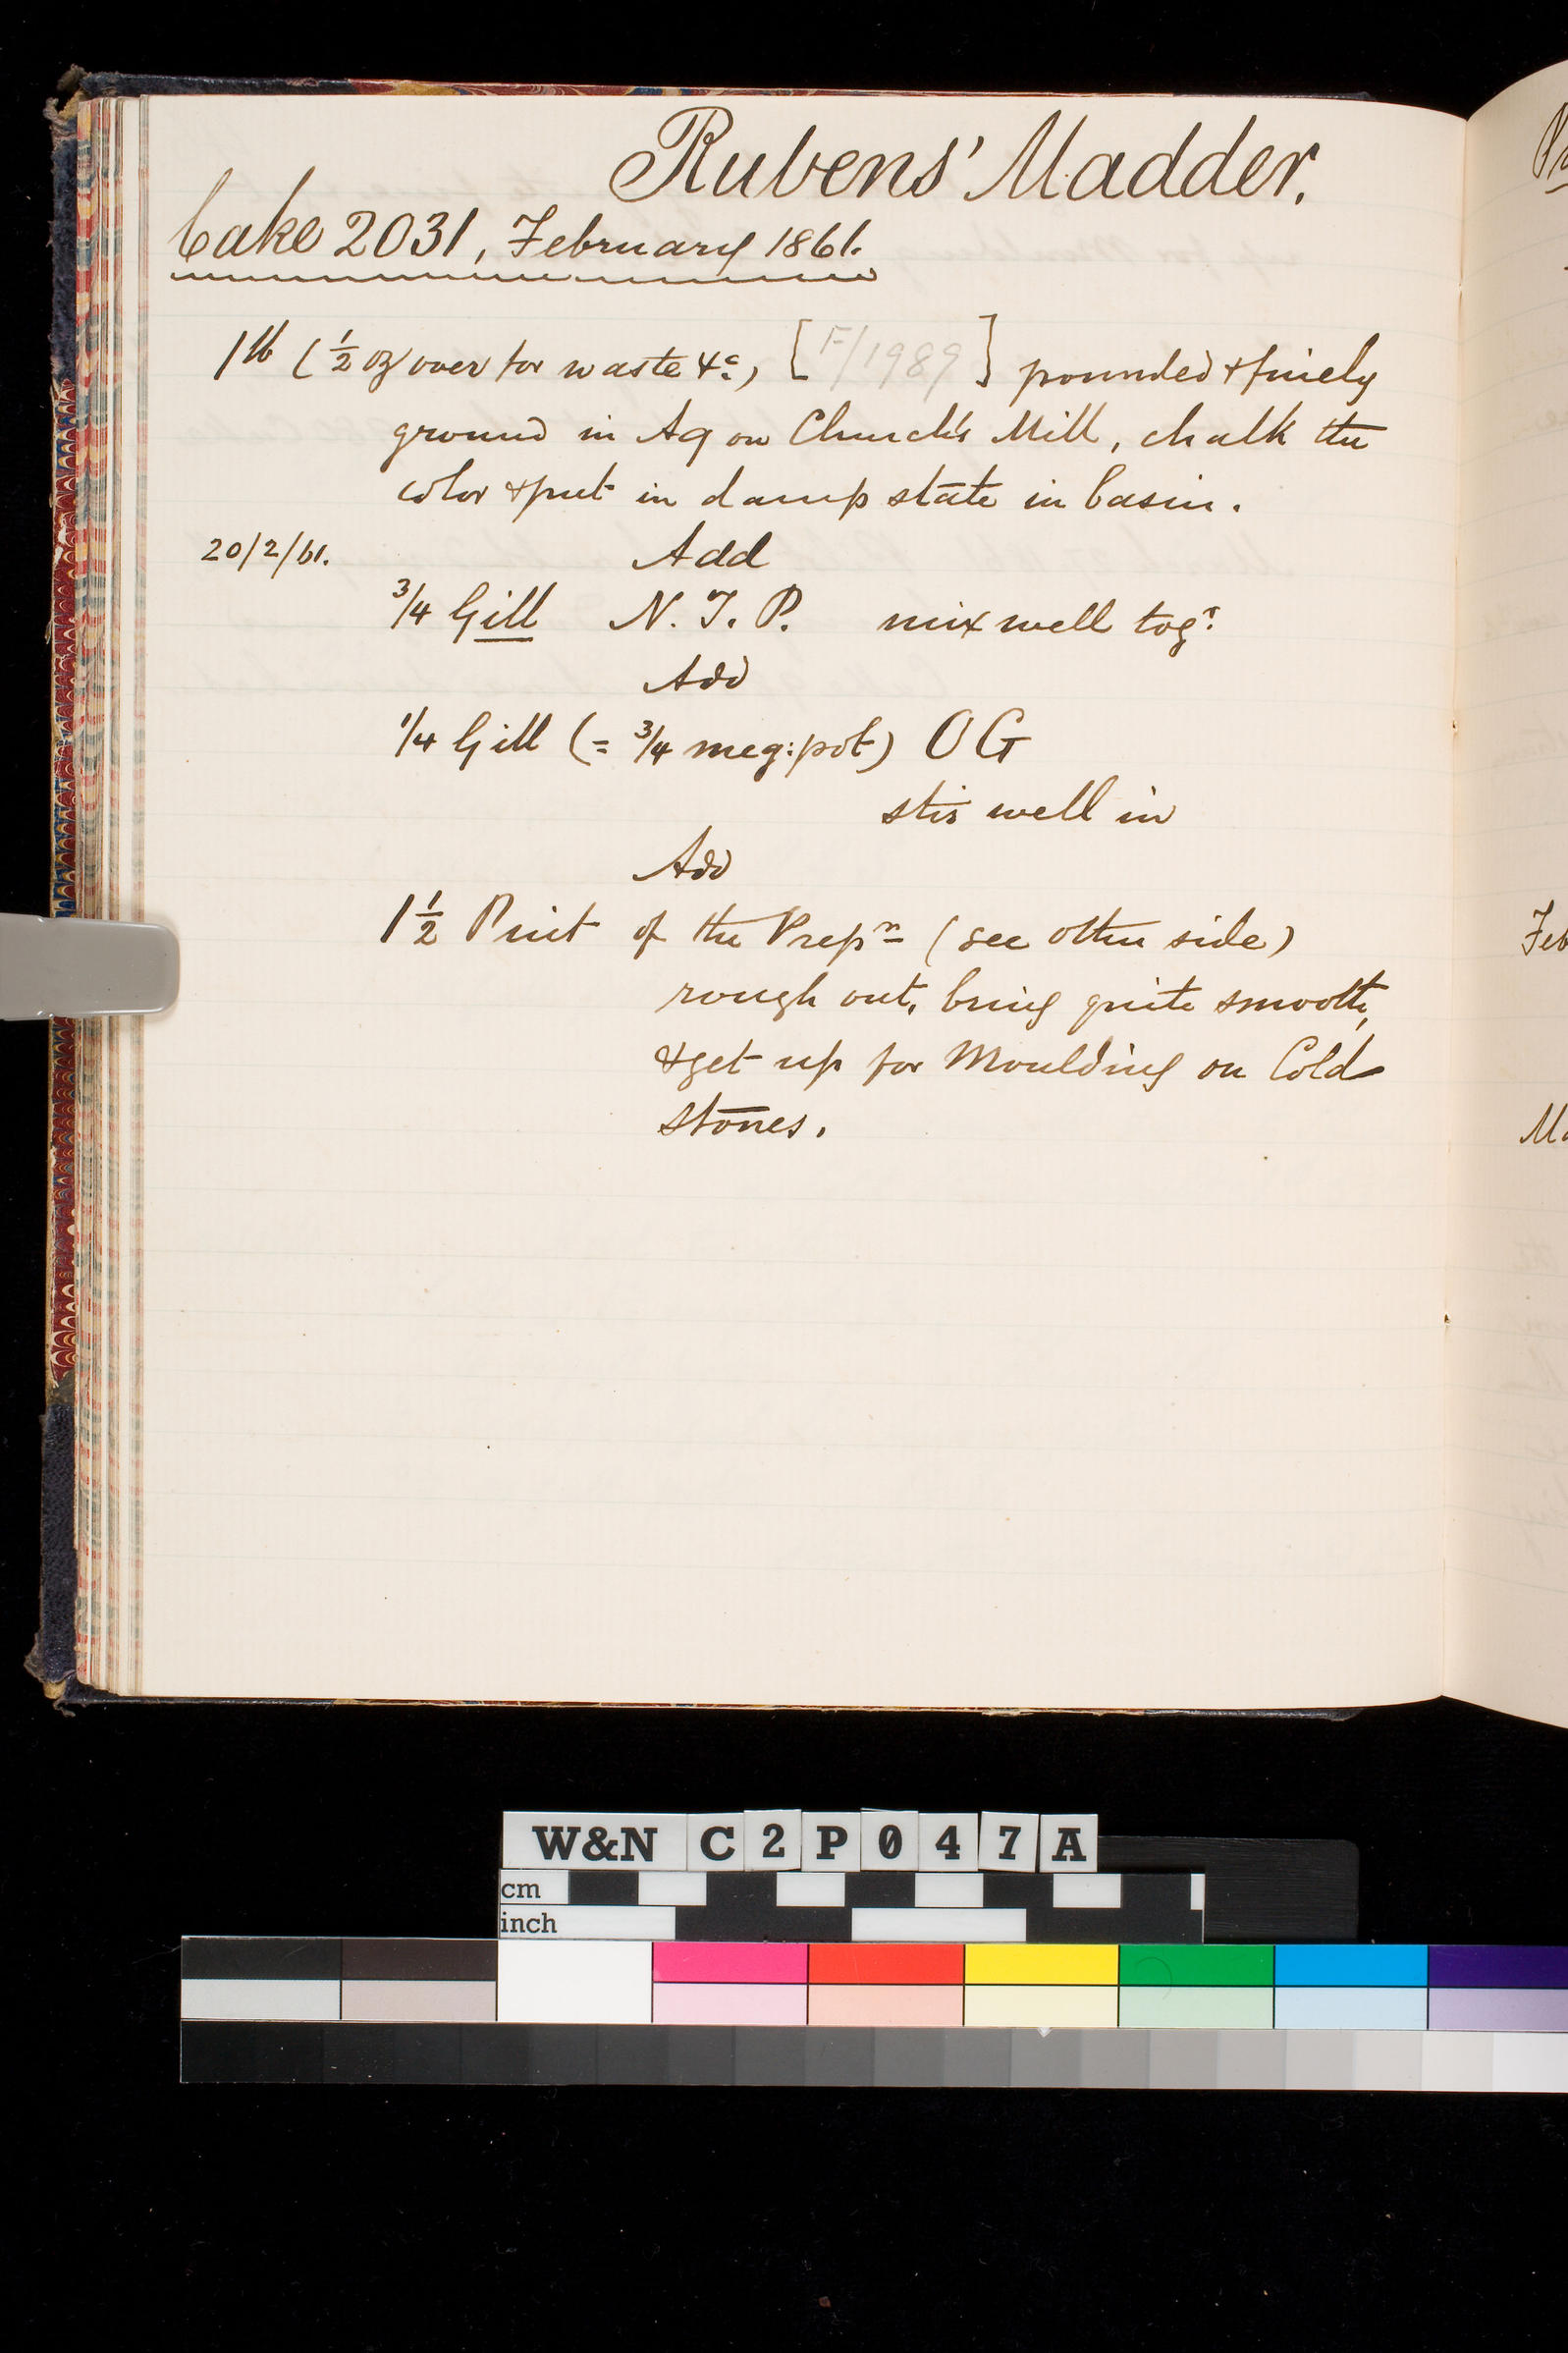 Rubens' Madder.
Cake 2031, February 1861.
1lb (½ oz over for waste &c.,) [F/1989] pounded & finely
ground in Aq on Church's Mill, chalk the
color & put in damp state in basin.
20/2/61. Add
3/4 Gill N. T. P. mix well togr.
Add
1/4 Gill (= 3/4 meg: pot) O G
stir well in
Add
1½ Pint of the Prepn (see other side)
rough out, bring quite smooth,
& get up for Moulding on Cold
stones.
Feb
Ma
W&N C2P047A
cm
inch